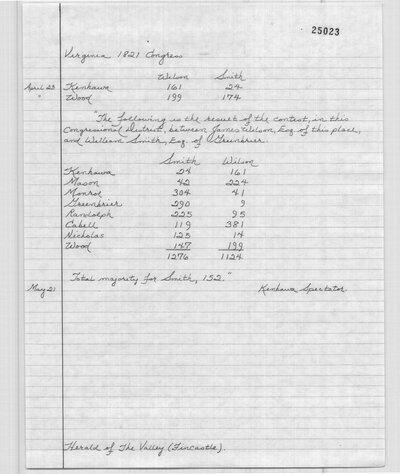 25023
Virginia 1821 Congress
Wilson Smith
April 23 Kenhawa 161 24
" Wood 199 174
"The following is the result of the contest, in this
Congressional District, between James Wilson, Esq. of this place,
and William Smith, Esq. of Greenbrier.
Smith Wilson
Kenhawa 24 161
Mason 42 224
Monroe 304 41
Greenbrier 290 9
Randolph 225 95
Cabell 119 381
Nicholas 125 14
Wood 147 199
1276 1124
Total majority for Smith, 152."
May 21 Kenhawa Spectator.
Herald of The Valley (Fincastle).